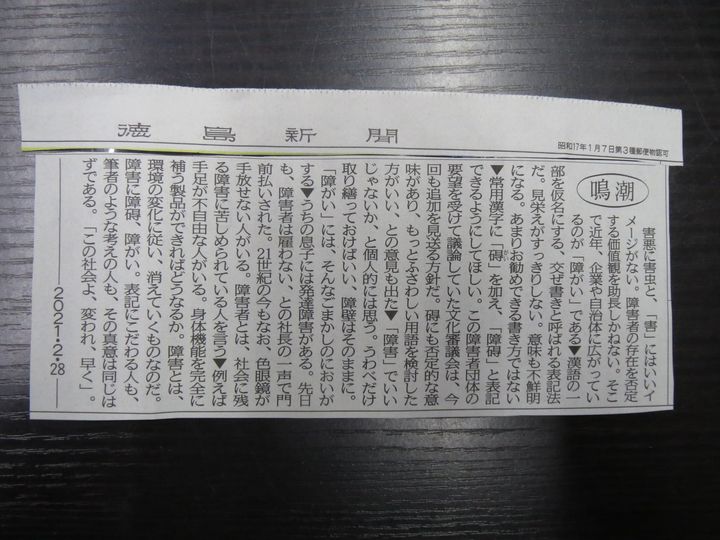 徳島新聞
昭和17年1月7日第3種郵便物認可
鳴潮
害悪に害虫と、「害」にはいいイ
メージがない。障害者の存在を否定
する価値観を助長しかねない。そこ
で近年、企業や自治体に広がってい
るのが「障がい」である▼漢語の一
部を仮名にする、交ぜ書きと呼ばれる表記法
だ。見栄えがすっきりしない。意味も不鮮明
になる。あまりお勧めできる書き方ではない
▼常用漢字に「碍」を加え、「障碍」と表記
がい
できるようにしてほしい。この障害者団体の
要望を受けて議論していた文化審議会は、今
回も追加を見送る方針だ。碍にも否定的な意
味があり、もっとふさわしい用語を検討した
方がいい、との意見も出た▼「障害」でいい
じゃないか、と個人的には思う。うわべだけ
取り繕っておけばいい、障壁はそのままに。
「障がい」には、そんなごまかしのにおいが
する▼うちの息子には発達障害がある。先日
も、障害者は雇わない、との社長の一声で門
前払いされた。21世紀の今もなお、色眼鏡が
手放せない人がいる。障害者とは、社会に残
る障害に苦しめられている人を言う▼例えば
手足が不自由な人がいる。身体機能を完全に
補う製品ができればどうなるか。障害とは、
環境の変化に従い、消えていくものなのだ。
障害に障碍、障がい。表記にこだわる人も、
筆者のような考えの人も、その真意は同じは
ずである。「この社会よ、変われ、早く」。
2021・2・28